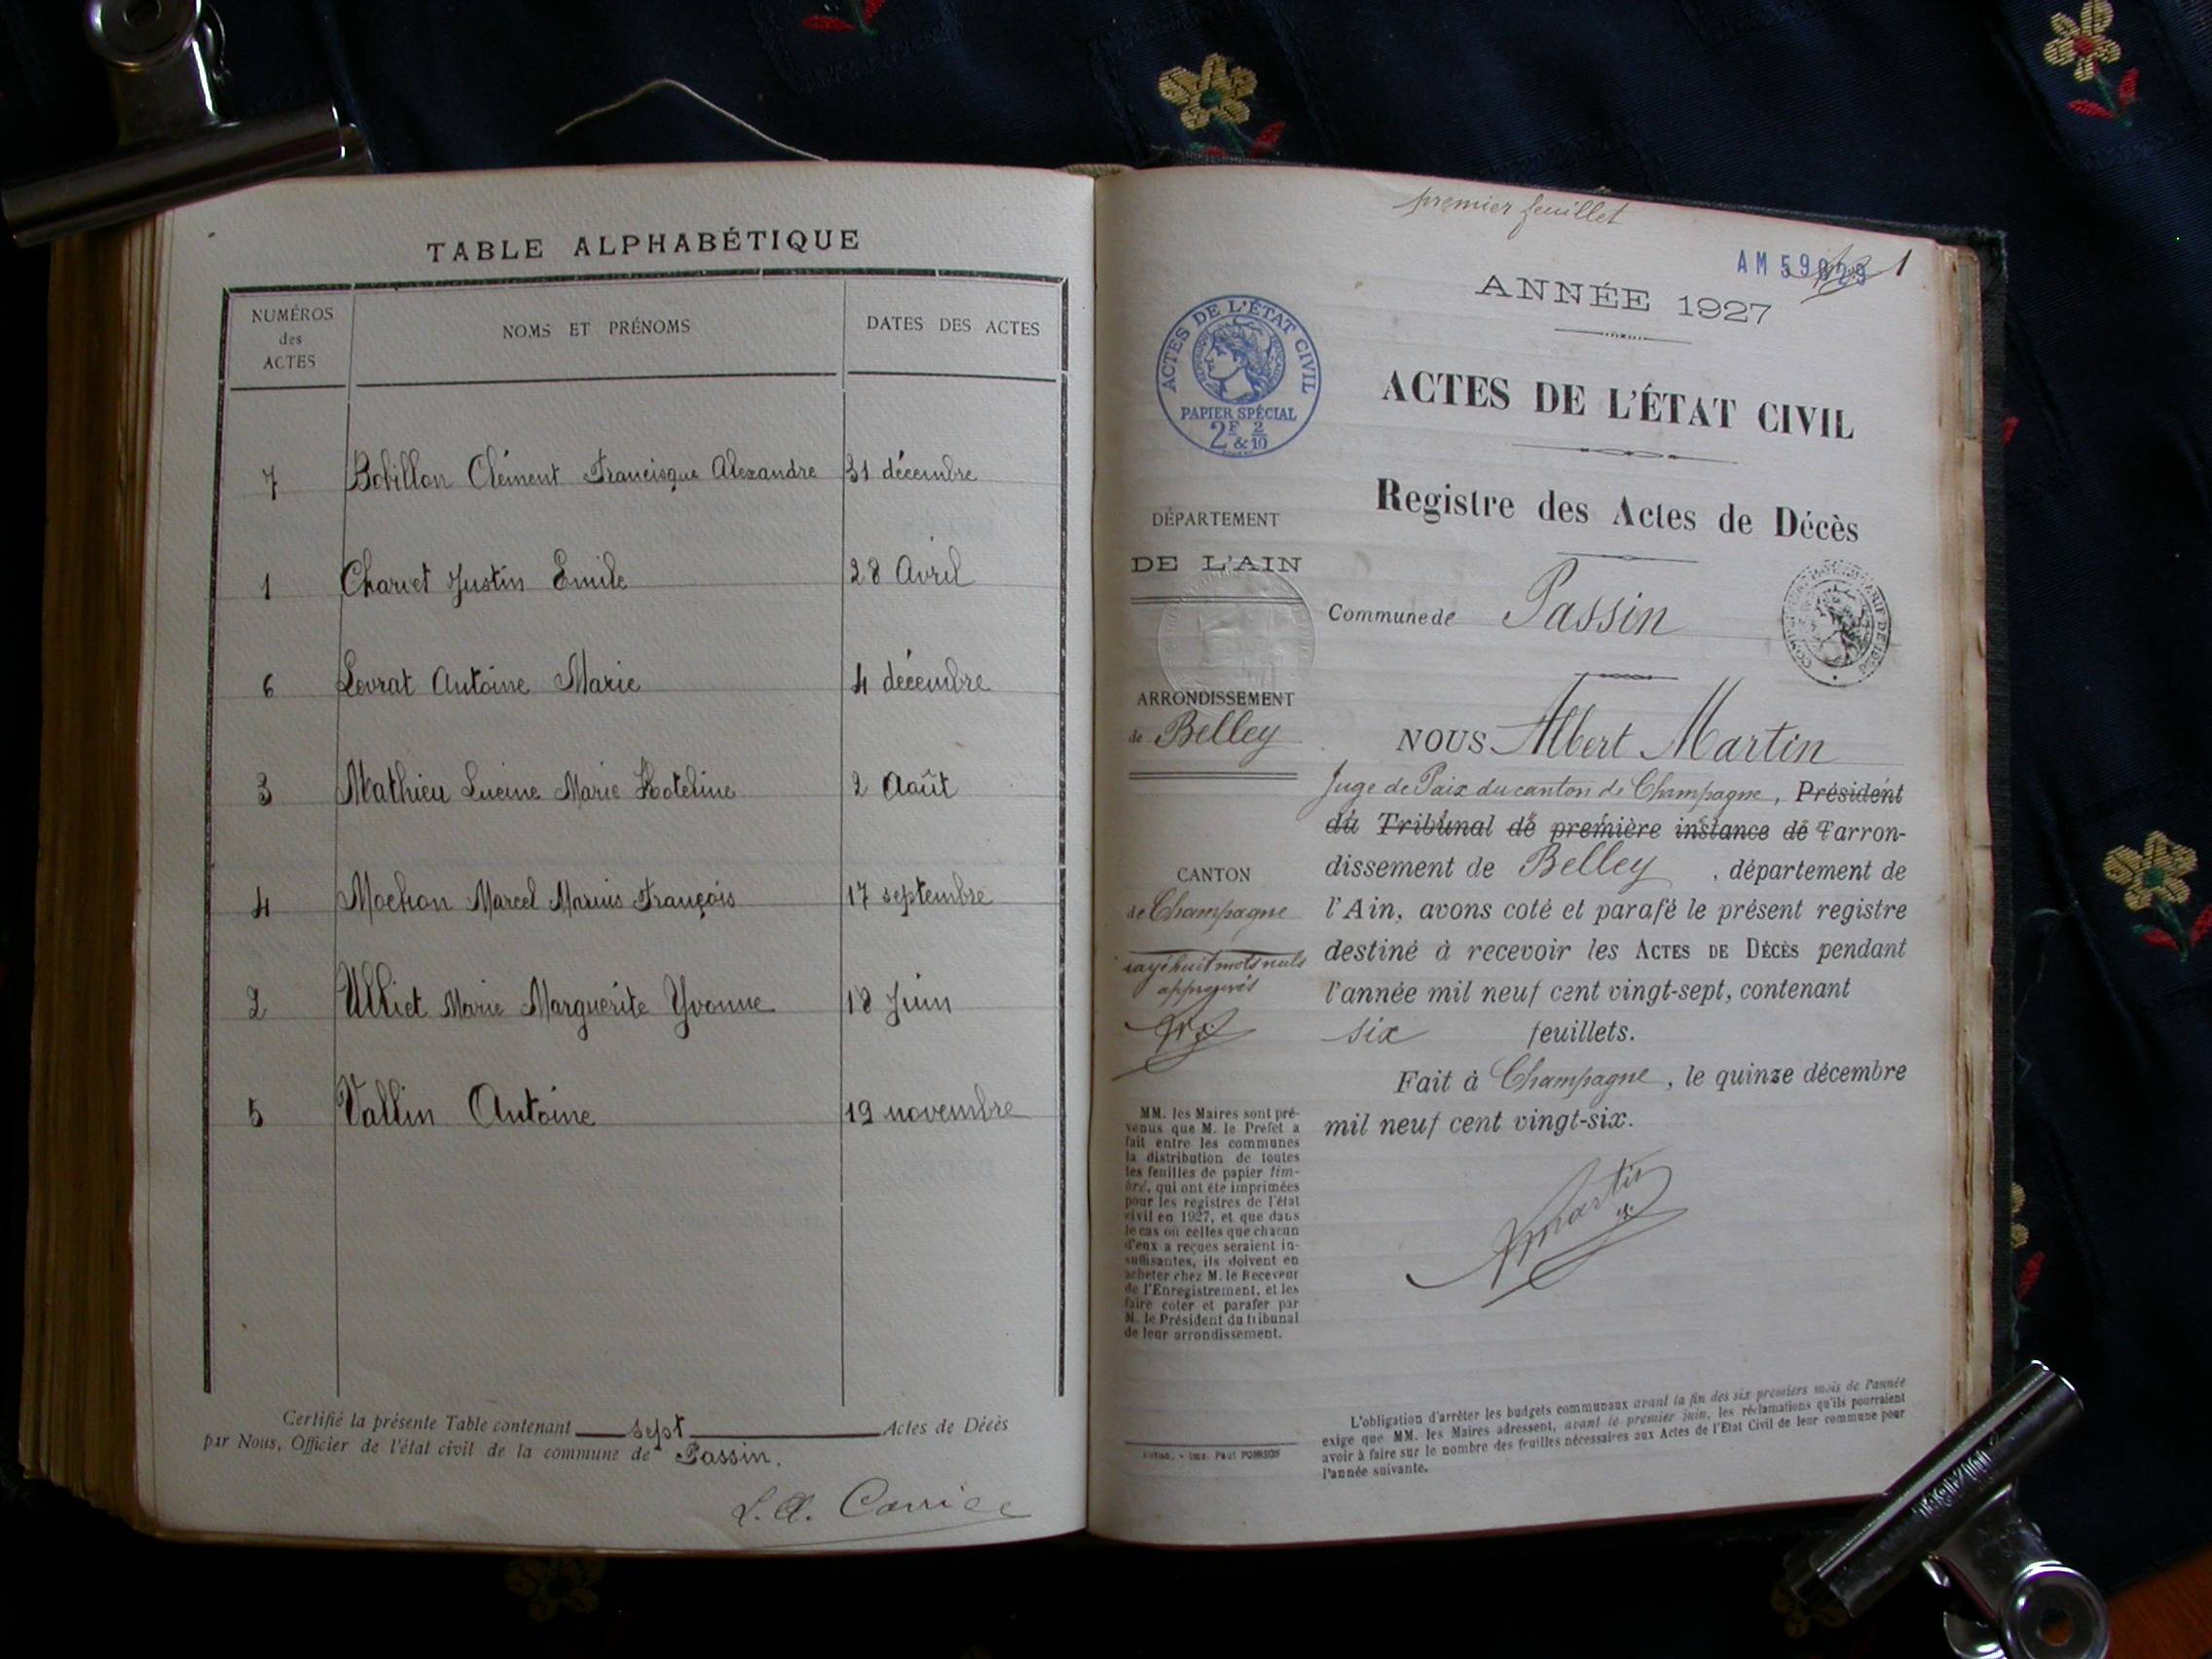 TABLE ALPHABÉTIQUE
NUMÉROS
des
ACTES
NOMS ET PRÉNOMS
DATES DES ACTES
7 Bobillon Clément Francisque Alexandre 31 décembre
1 Charvet Justin Emile 28 Avril
6 Levrat Antoine Marie 4 décembre
3 Mathieu Marie 2 Août
4 Mochon Marcel Marius François 17 septembre
2 Ulliet Marie Marguerite Yvonne 18 Juin
5 Vallin Antoine 19 novembre
Certifié la présente Table contenant sept Actes de Décès
par Nous, Officier de l'état civil de la commune de Passin.
premier feuillet
1
ANNÉE 1927
ACTES DE L'ÉTAT CIVIL
PAPIER SPÉCIAL
2F & 2/10
ACTES DE L'ÉTAT CIVIL
Registre des Actes de Décès
DÉPARTEMENT
DE L'AIN
Commune de Passin
ARRONDISSEMENT
de Belley
CANTON
de Champagne
rayé huit mots nuls
approuvés
NOUS Albert Martin
Juge de Paix du canton de Champagne, Président
du Tribunal de première instance de l'arron-
dissement de Belley, département de
l'Ain, avons coté et parafé le présent registre
destiné à recevoir les ACTES DE DÉCÈS pendant
l'année mil neuf cent vingt-sept, contenant
six feuillets.
Fait à Champagne, le quinze décembre
mil neuf cent vingt-six.
Martin
MM. les Maires sont pré-
venus que M. le Préfet a
fait entre les communes
la distribution de toutes
les feuilles de papier tim-
bré, qui ont été imprimées
pour les registres de l'état
civil en 1927, et que dans
le cas où celles que chacun
d'eux a reçues seraient in-
suffisantes, ils doivent en
acheter chez M. le Receveur
de l'Enregistrement, et les
faire coter et parafer par
M. le Président du tribunal
de leur arrondissement.
Imp. Paul
L'obligation d'arrêter les budgets communaux avant la fin des six premiers mois de l'année
exige que MM. les Maires adressent, avant le premier juin, les réclamations qu'ils pourraient
avoir à faire sur le nombre des feuilles nécessaires aux Actes de l'Etat Civil de leur commune pour
l'année suivante.